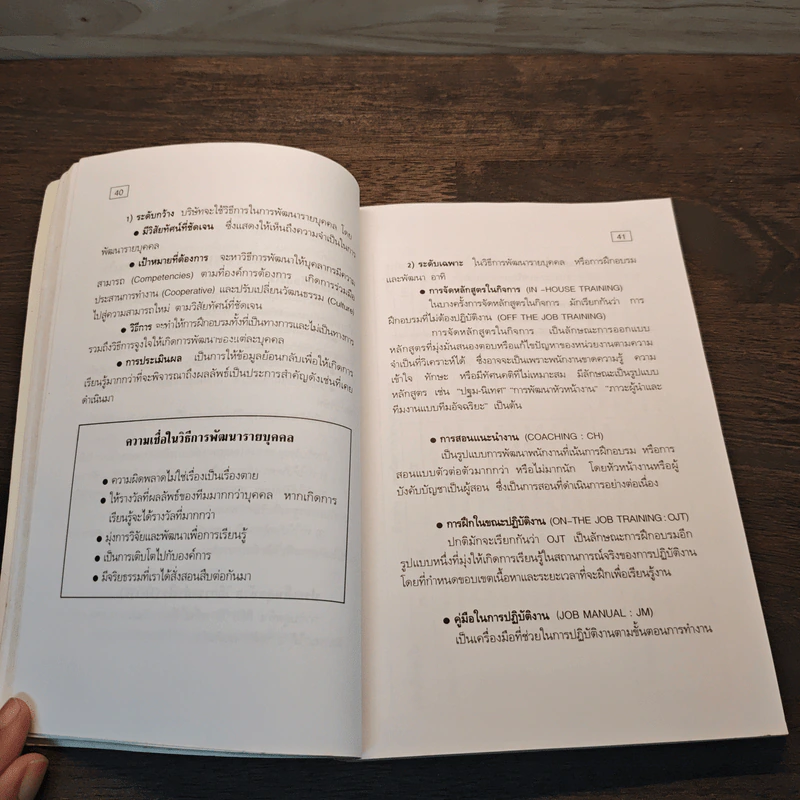 40
1) ระดับกว้าง บริษัทจะใช้วิธีการในการพัฒนารายบุคคล โดย
● มีวิสัยทัศน์ที่ชัดเจน ซึ่งแสดงให้เห็นถึงความจำเป็นในการ
พัฒนารายบุคคล
● เป้าหมายที่ต้องการ จะหาวิธีการพัฒนาให้บุคลากรมีความ
สามารถ (Competencies) ตามที่องค์การต้องการ เกิดการร่วมมือ
ประสานการทำงาน (Cooperative) และปรับเปลี่ยนวัฒนธรรม (Culture)
ไปสู่ความสามารถใหม่ ตามวิสัยทัศน์ที่ชัดเจน
● วิธีการ จะทำให้การฝึกอบรมทั้งที่เป็นทางการและไม่เป็นทางการ
รวมถึงวิธีการจูงใจให้เกิดการพัฒนาของแต่ละบุคคล
● การประเมินผล เป็นการให้ข้อมูลย้อนกลับเพื่อให้เกิดการ
เรียนรู้มากกว่าที่จะพิจารณาถึงผลลัพธ์เป็นประการสำคัญดังเช่นที่เคย
ดำเนินมา
ความเชื่อในวิธีการพัฒนารายบุคคล
● ความผิดพลาดไม่ใช่เรื่องเป็นเรื่องตาย
● ให้รางวัลที่ผลลัพธ์ของทีมมากกว่าบุคคล หากเกิดการ
เรียนรู้จะได้รางวัลที่มากกว่า
● มุ่งการวิจัยและพัฒนาเพื่อการเรียนรู้
● เป็นการเติบโตไปกับองค์การ
● มีจริยธรรมที่เราได้สั่งสอนสืบต่อกันมา
41
2) ระดับเฉพาะ ในวิธีการพัฒนารายบุคคล หรือการฝึกอบรม
และพัฒนา อาทิ
● การจัดหลักสูตรในกิจการ (IN -HOUSE TRAINING)
ในบางครั้งการจัดหลักสูตรในกิจการ มักเรียกกันว่า การ
ฝึกอบรมที่ไม่ต้องปฏิบัติงาน (OFF THE JOB TRAINING)
การจัดหลักสูตรในกิจการ เป็นลักษณะการออกแบบ
หลักสูตรที่มุ่งมั่นสนองตอบหรือแก้ไขปัญหาของหน่วยงานตามความ
จำเป็นที่วิเคราะห์ได้ ซึ่งอาจจะเป็นเพราะพนักงานขาดความรู้ ความ
เข้าใจ ทักษะ หรือมีทัศนคติที่ไม่เหมาะสม มีลักษณะเป็นรูปแบบ
หลักสูตร เช่น "ปฐม-นิเทศ" "การพัฒนาหัวหน้างาน" "ภาวะผู้นำและ
ทีมงานแบบทีมอัจฉริยะ" เป็นต้น
● การสอนแนะนำงาน (COACHING : CH)
เป็นรูปแบบการพัฒนาพนักงานที่เน้นการฝึกอบรม หรือการ
สอนแบบตัวต่อตัวมากกว่า หรือไม่มากนัก โดยหัวหน้างานหรือผู้
บังคับบัญชาเป็นผู้สอน ซึ่งเป็นการสอนที่ดำเนินการอย่างต่อเนื่อง
● การฝึกในขณะปฏิบัติงาน (ON-THE JOB TRAINING : OJT)
ปกติมักจะเรียกกันว่า OJT เป็นลักษณะการฝึกอบรมอีก
รูปแบบหนึ่งที่มุ่งให้เกิดการเรียนรู้ในสถานการณ์จริงของการปฏิบัติงาน
โดยที่กำหนดขอบเขตเนื้อหาและระยะเวลาที่จะฝึกเพื่อเรียนรู้งาน
● คู่มือในการปฏิบัติงาน (JOB MANUAL : JM)
เป็นเครื่องมือที่ช่วยในการปฏิบัติงานตามขั้นตอนการทำงาน